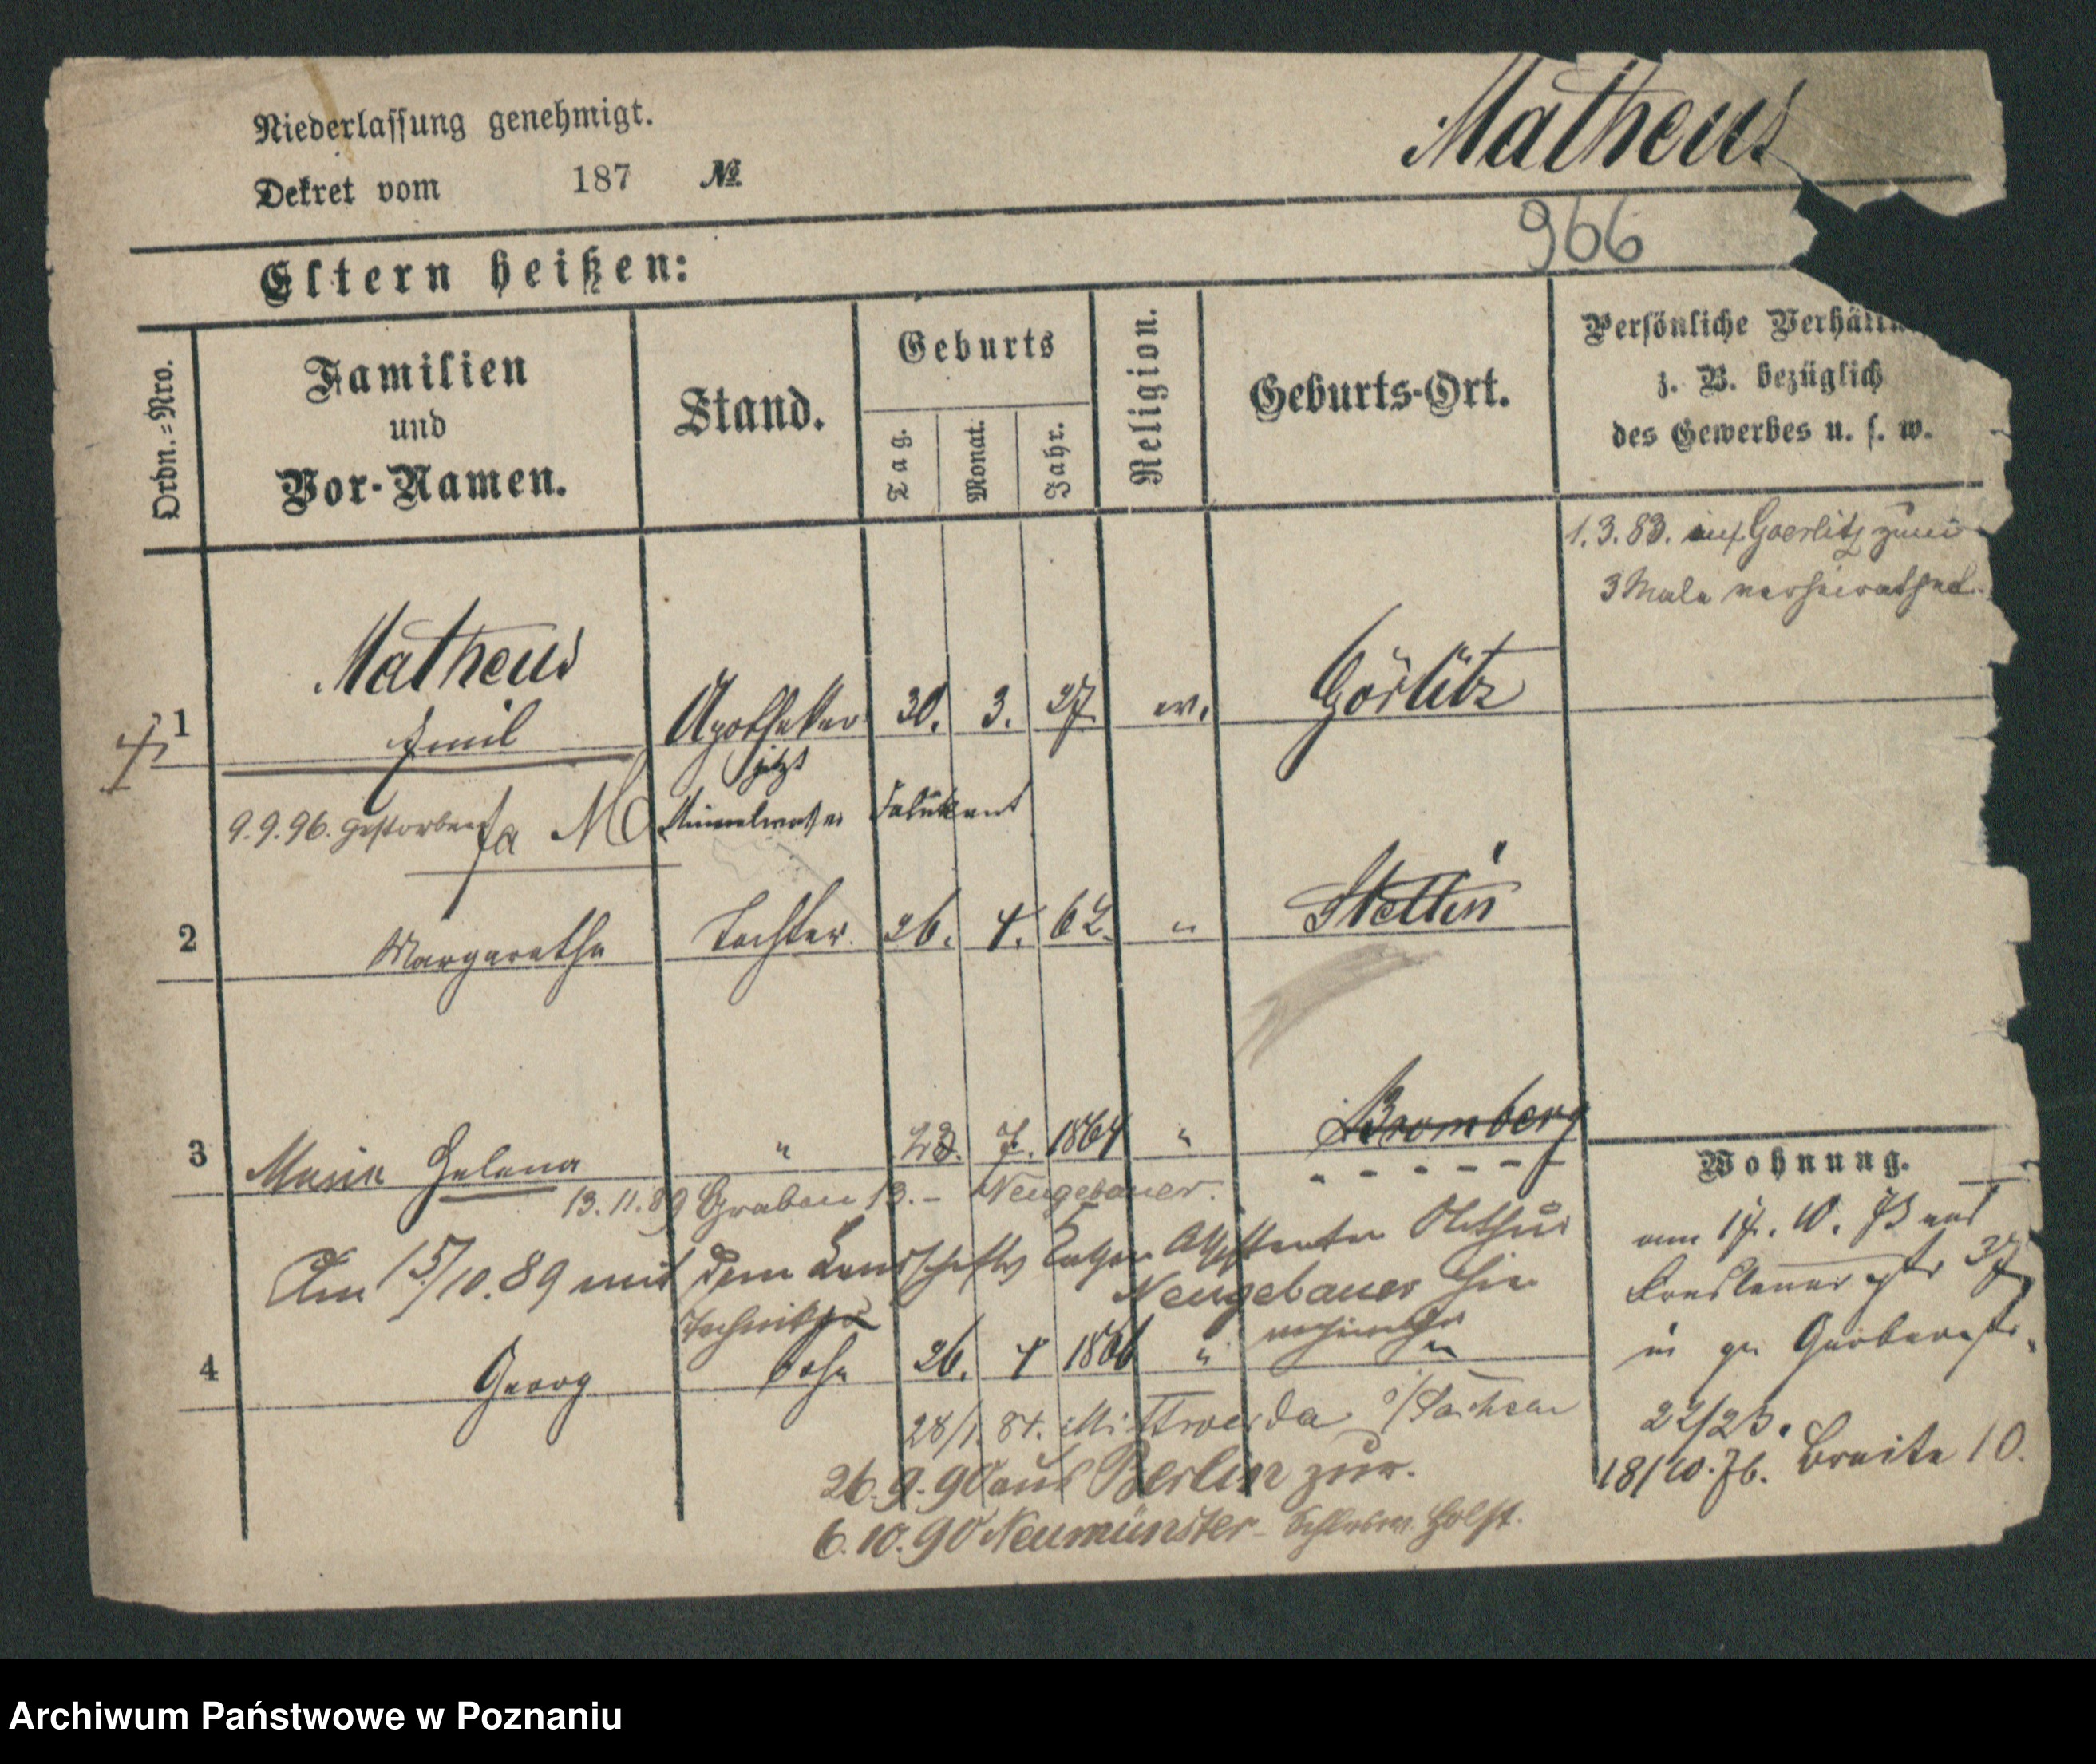 Niederlassung genehmigt.
Dekret vom 187 №
Matheus
966
Eltern heißen:
Ordn.=Nro.
Familien
und
Vor-Namen.
Stand.
Geburts
Tag.
Monat.
Jahr.
Religion.
Geburts-Ort.
Persönliche Verhält
z. B. bezüglich
des Gewerbes u. s. w.
1.3.83. auf Goerlitz zum
3 Male verheirathet.
1 Matheus
Emil Apotheker 30. 3. 27 ev. Görlitz
jetzt
9.9.96. gestorben Mineralwasser Fabrikant
2 Margarethe Tochter 26. 4. 62. " Stettin
3 Maria Helena " 23. 7. 1864 " Bromberg
13.11.89 Graben 13. – Neugebauer.
Am 15/10.89 mit dem Landschafts Assistenten
Neugebauer hier
Techniker
4 Georg Sohn 26. 4 1866 " "
28/1.84. Mittweida i/Sachsen
26.9.90 aus Berlin zur.
6.10.90 Neumünster – Schlesw. Holst.
Wohnung.
am 17. 10. 73 aus
Breslauer str 37
in gr Gerberstr.
22/23.
18/10.76. Breite 10.
Archiwum Państwowe w Poznaniu